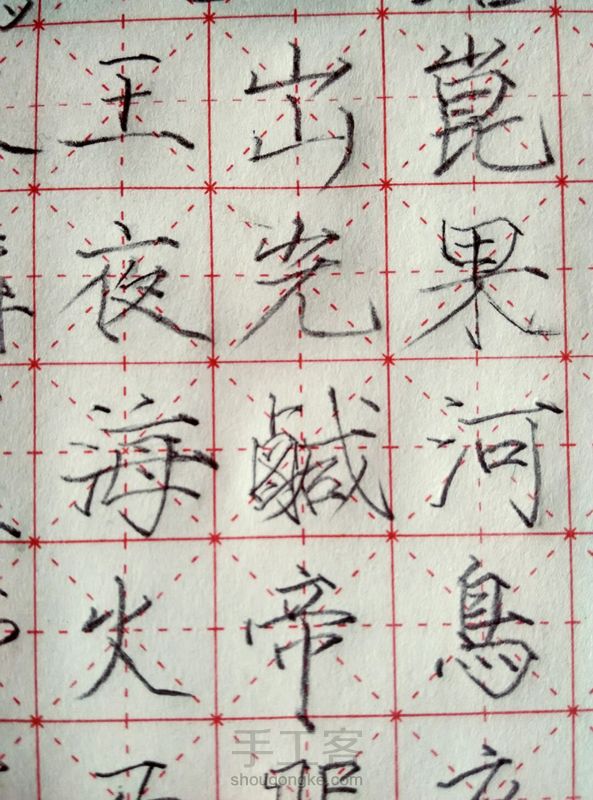 王出崑
夜光果
海鹹河
火帝鳥
手工客
shougongke.com